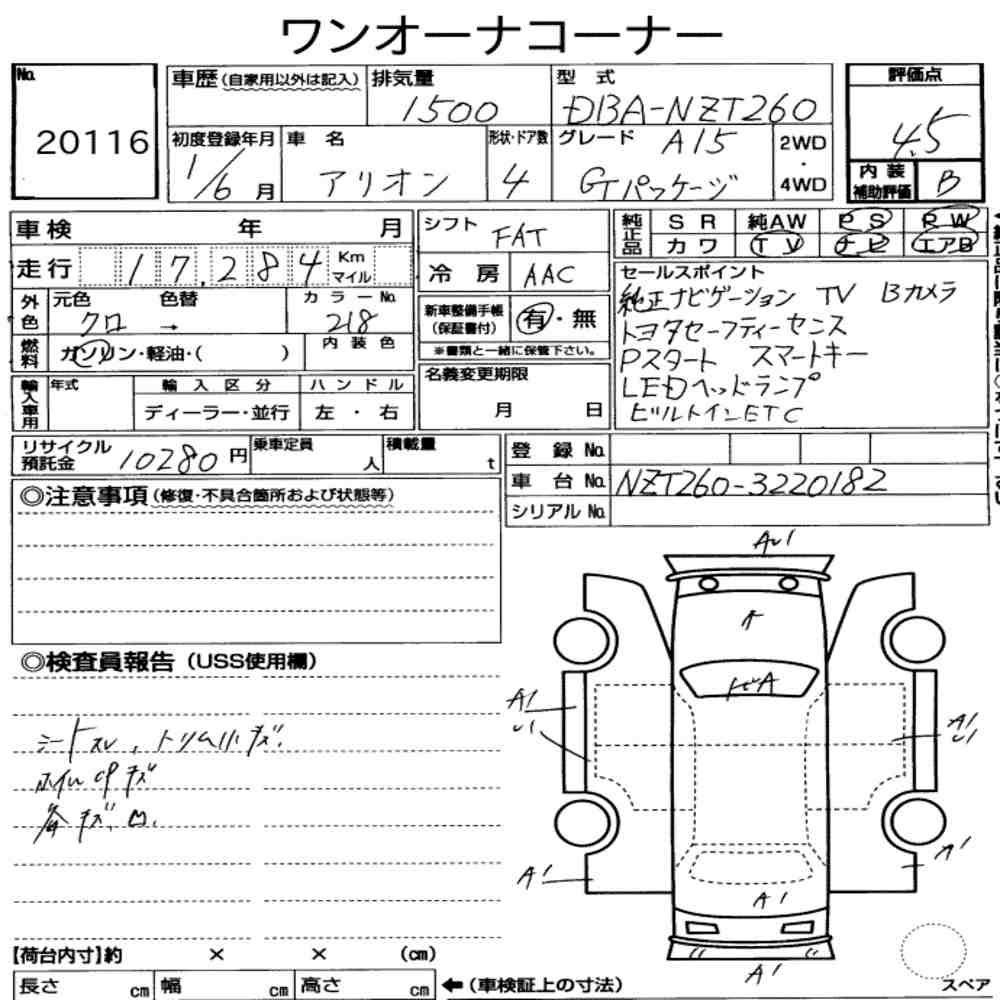 ワンオーナコーナー
No. 20116
車歴(自家用以外は記入) 排気量 1500 型式 DBA-NZT260 評価点 4.5
初度登録年月 1/6月 車名 アリオン 形状・ドア数 4 グレード A15 GTパッケージ 2WD・4WD 内装補助評価 B
車検 年 月 シフト FAT 純正品 SR 純AW PS PW
カワ TV ナビ エアB
走行 17,284 Km マイル 冷房 AAC
外色 元色 クロ 色替 → カラーNo. 218
新車整備手帳(保証書付) 有・無
※書類と一緒に保管下さい。
燃料 ガソリン・軽油・( ) 内装色
輸入車用 年式 輸入区分 ディーラー・並行 ハンドル 左・右
名義変更期限 月 日
セールスポイント
純正ナビゲーション TV Bカメラ
トヨタセーフティーセンス
Pスタート スマートキー
LEDヘッドランプ
ビルトインETC
リサイクル預託金 10280円 乗車定員 人 積載量 t
登録No.
車台No. NZT260-3220182
シリアルNo.
◎注意事項(修復・不具合箇所および状態等)
◎検査員報告(USS使用欄)
シートスレ、トリム小キズ、
ホイルCPキズ
各キズ、凹、
A1
A1
A1
A1
A1
A1
A1
【荷台内寸】約 × × (cm)
長さ cm 幅 cm 高さ cm ←(車検証上の寸法)
スペア